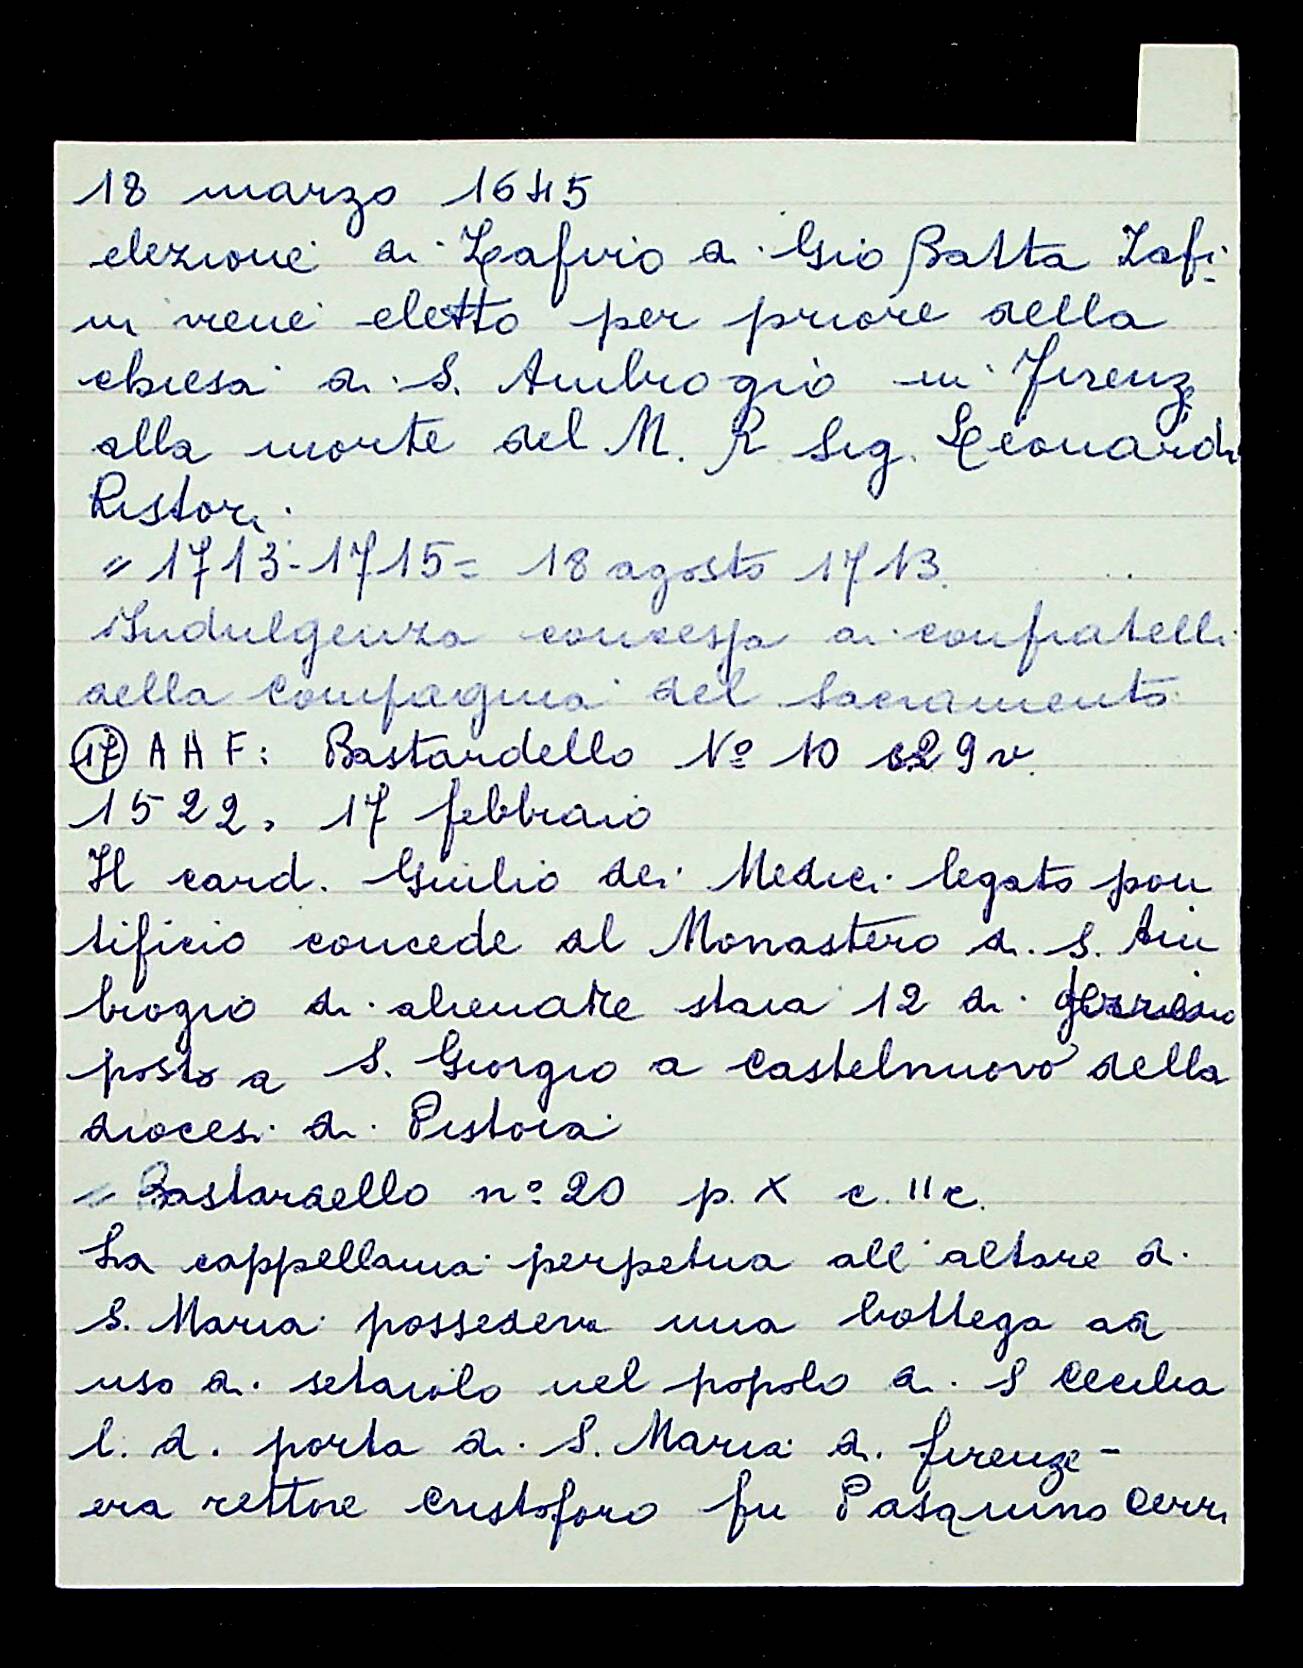 18 marzo 1645
elezione di Zafirio di Gio Batta Zafi
ni viene eletto per priore della
chiesa di S. Ambrogio in Firenz
alla morte del M. R Sig. Leonardo
Ristori.
" 1713-1715= 18 agosto 1713.
Indulgenza concessa ai confratelli
della Compagnia del Sacramento
(17) A A F: Bastardello Nº 10 c29v.
1522, 17 febbraio
Il card. Giulio dei Medici legato pon
tificio concede al Monastero di S. Am
brogio di alienare staia 12 di terreno
posto a S. Giorgio a Castelnuovo della
diocesi di Pistoia
" Bastardello nº 20 p. X c. 11c.
La cappellania perpetua all'altare di
S. Maria possedeva una bottega ad
uso di setaiolo nel popolo di S Cecilia
l. d. porta di S. Maria di Firenze -
era rettore Cristoforo fu Pasquino Cerri